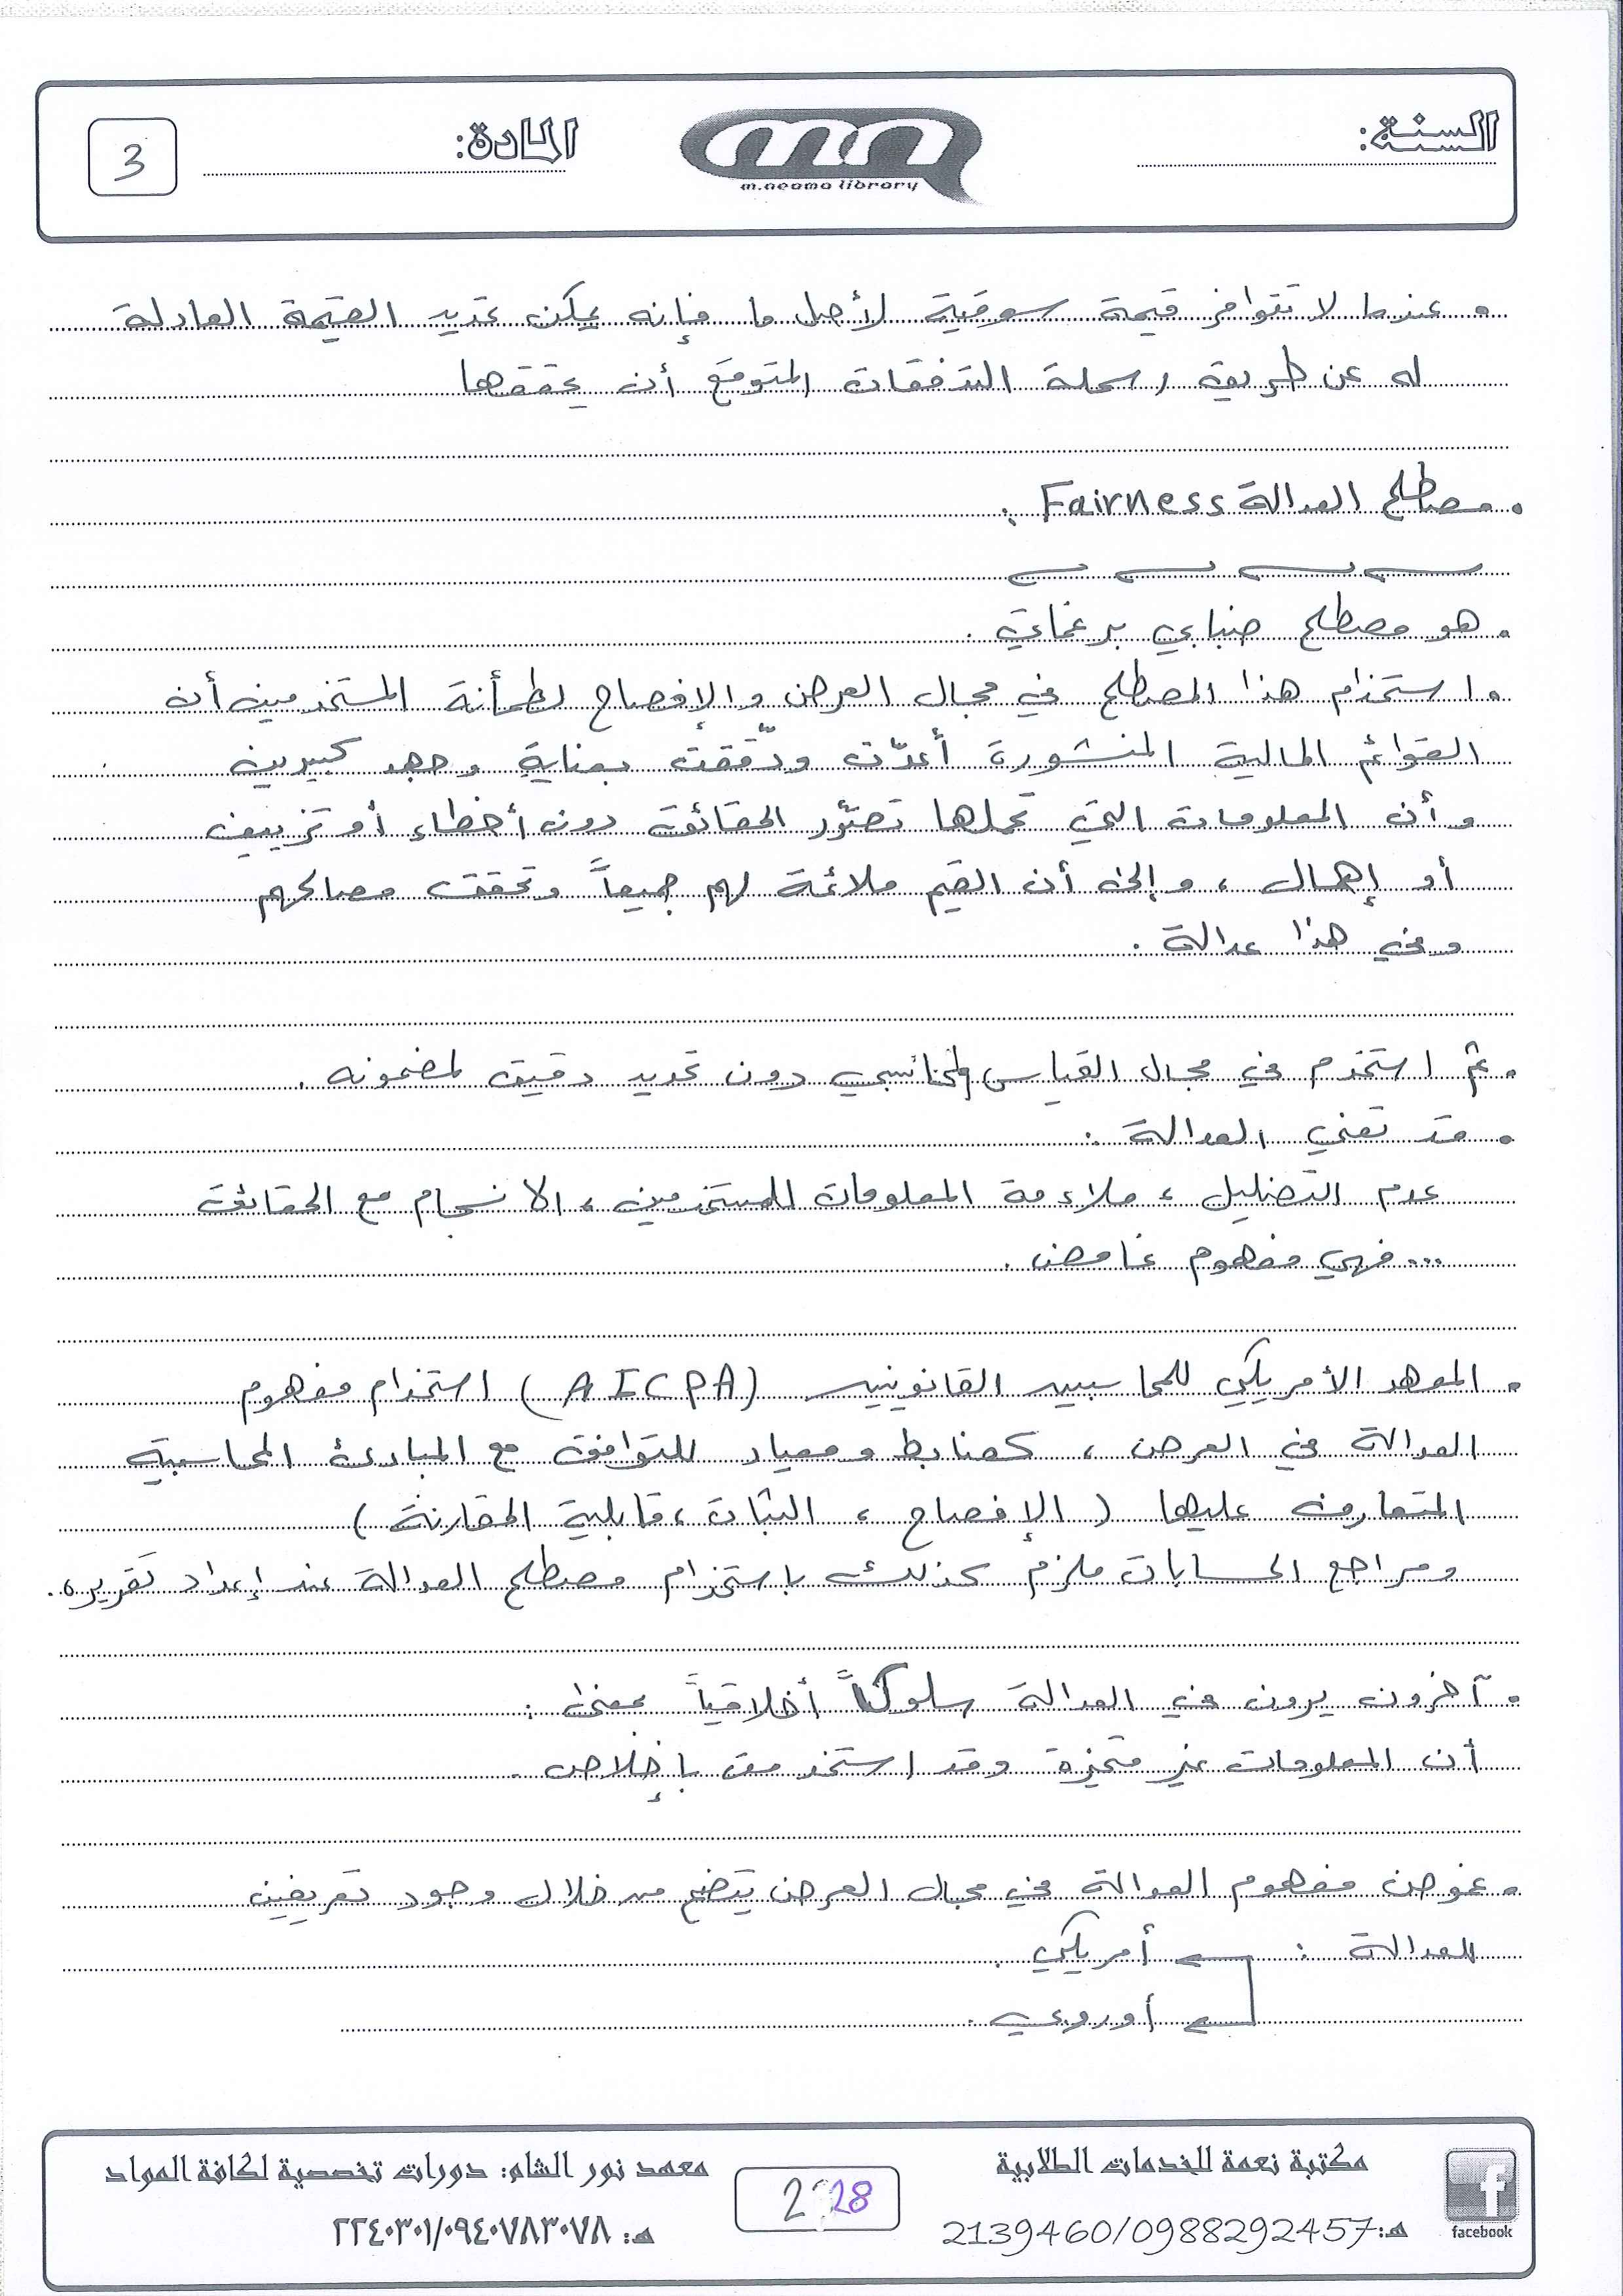 السنة:
m.neama library
المادة:
3
. عندما لا تتوافر قيمة سوقية لأصل ما فإنه يمكن تحديد القيمة العادلة
له عن طريق رسملة التدفقات المتوقع أن يحققها
. مصطلح العدالة Fairness :
. هو مصطلح ضبابي برغماتي .
. استخدام هذا المصطلح في مجال العرض والإفصاح لطمأنة المستخدمين أن
القوائم المالية المنشورة أعدّت ودُقّقت بعناية وجهد كبيرين
وأن المعلومات التي تحملها تصوّر الحقائق دون أخطاء أو تزييف
أو إهمال ، وإلى أن القيم ملائمة لهم جميعاً وتحقق مصالحهم
وفي هذا عدالة .
. ثم استخدم في مجال القياس المحاسبي دون تحديد دقيق لمضمونه .
. قد تعني العدالة :
عدم التضليل ، ملاءمة المعلومات للمستخدمين ، الانسجام مع الحقائق
... فهي مفهوم غامض .
. المعهد الأمريكي للمحاسبين القانونيين (AICPA) استخدام مفهوم
العدالة في العرض ، كضابط ومعيار للتوافق مع المبادئ المحاسبية
المتعارف عليها ( الإفصاح ، الثبات ، قابلية المقارنة )
ومراجع الحسابات ملزم كذلك باستخدام مصطلح العدالة عند إعداد تقريره .
. آخرون يرون في العدالة سلوكاً أخلاقياً بمعنى :
أن المعلومات غير متحيزة وقد استخدمت بإخلاص .
. غموض مفهوم العدالة في مجال العرض يتضح من خلال وجود تعريفين
للعدالة : أمريكي .
أوروبي .
facebook
مكتبة نعمة للخدمات الطلابية
هـ: 2139460/0988292457
2 28
معهد نور الشام: دورات تخصصية لكافة المواد
هـ: ٢٢٤٠٣٠١/٠٩٤٠٧٨٣٠٧٨